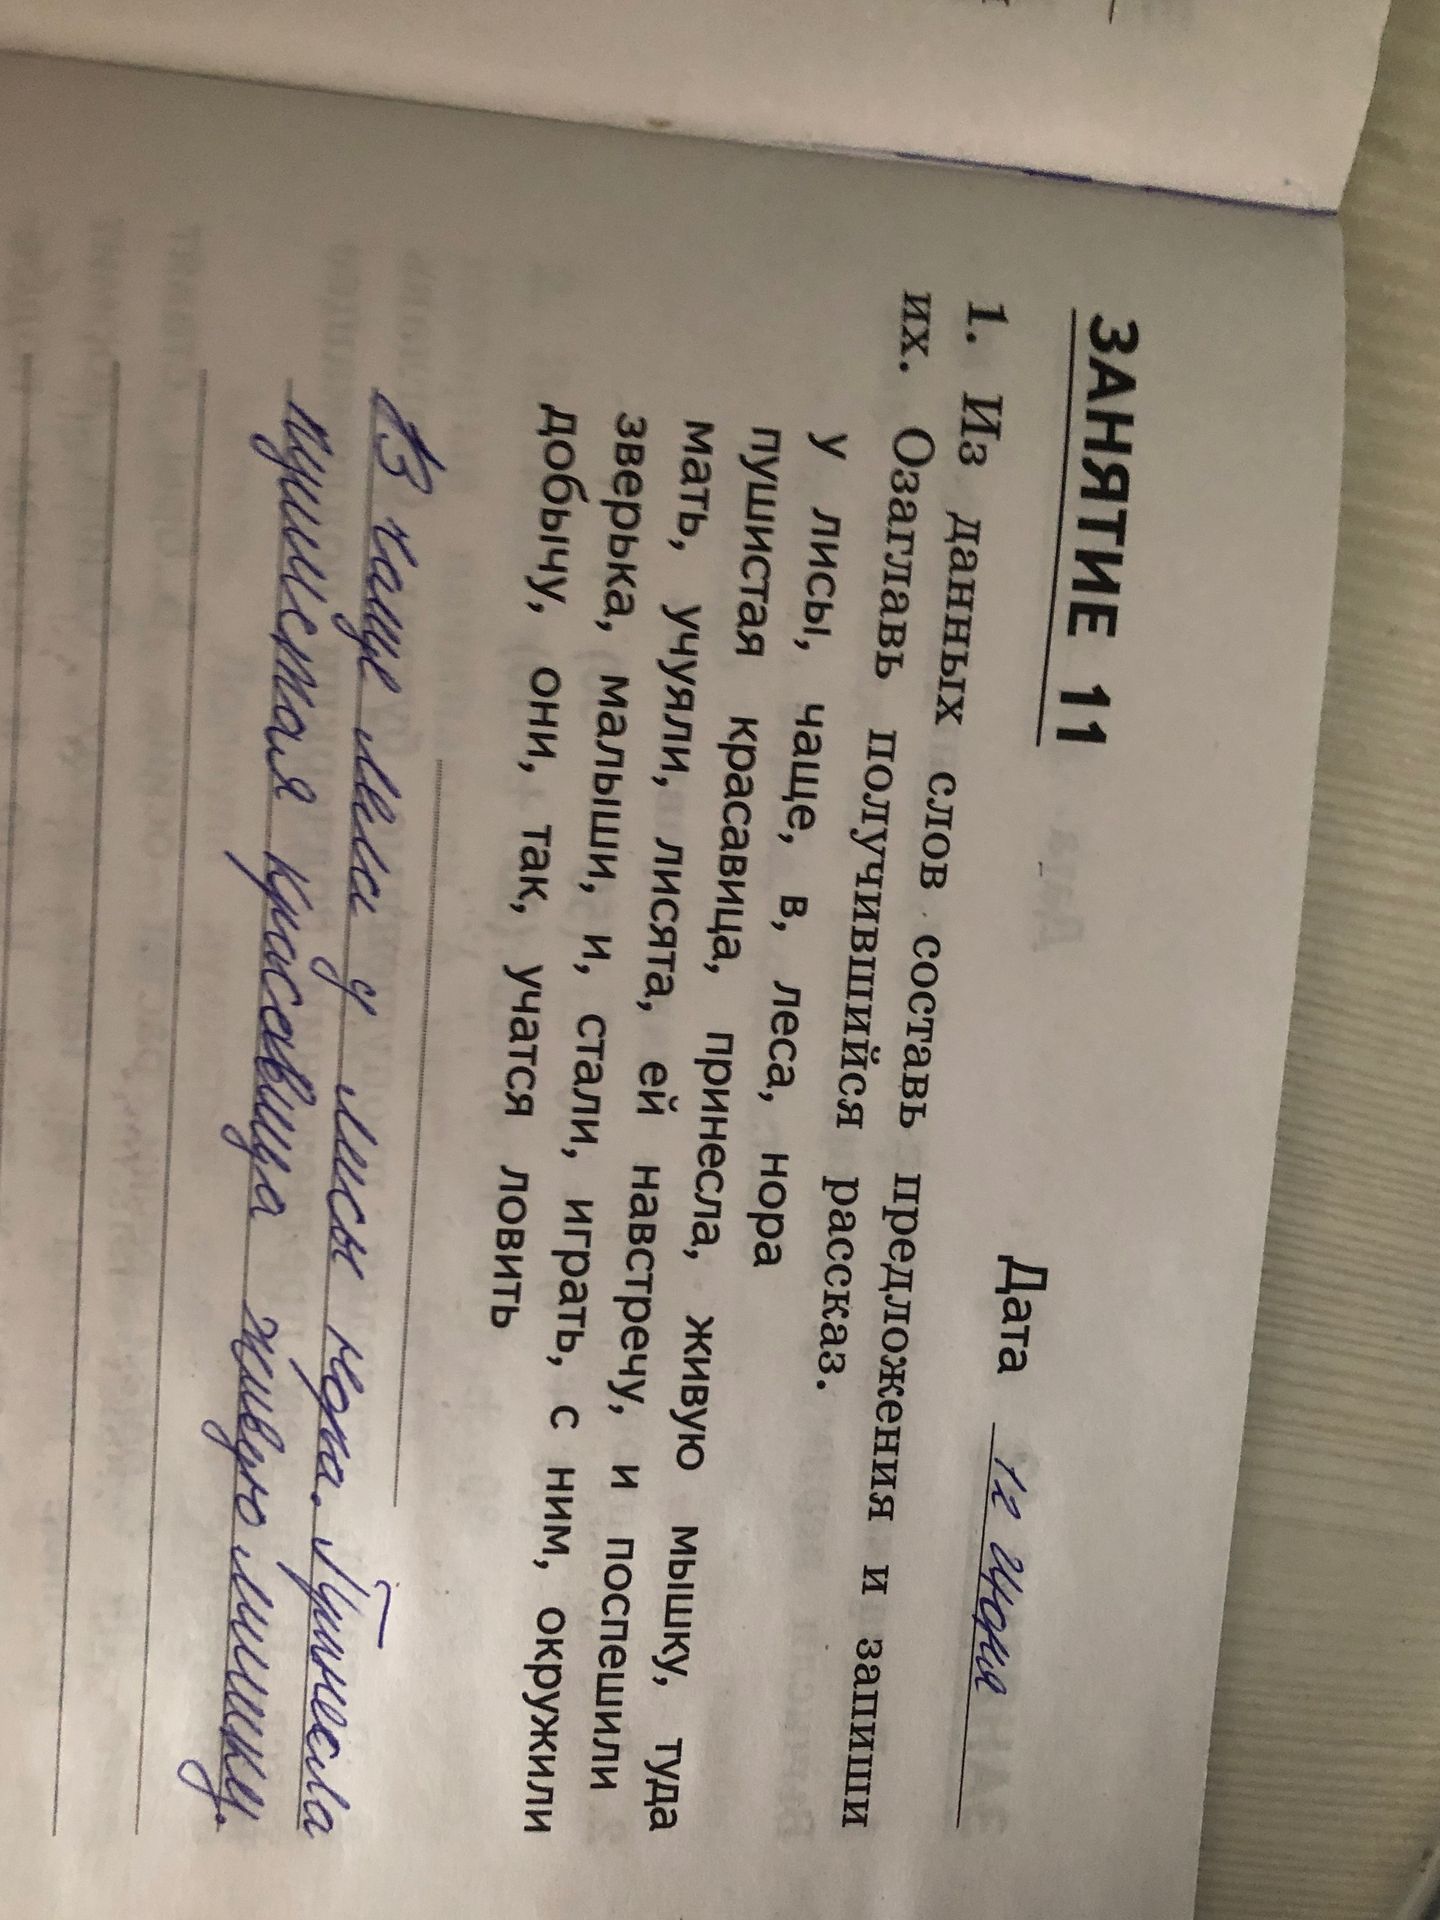 ЗАНЯТИЕ 11
Дата 12 июня
1. Из данных слов составь предложения и запиши
их. Озаглавь получившийся рассказ.
у лисы, чаще, в, леса, нора
пушистая красавица, принесла, живую мышку, туда
мать, учуяли, лисята, ей навстречу, и поспешили
зверька, малыши, и, стали, играть, с ним, окружили
добычу, они, так, учатся ловить
В чаще леса у лисы нора. Принесла
пушистая красавица живую мышку.